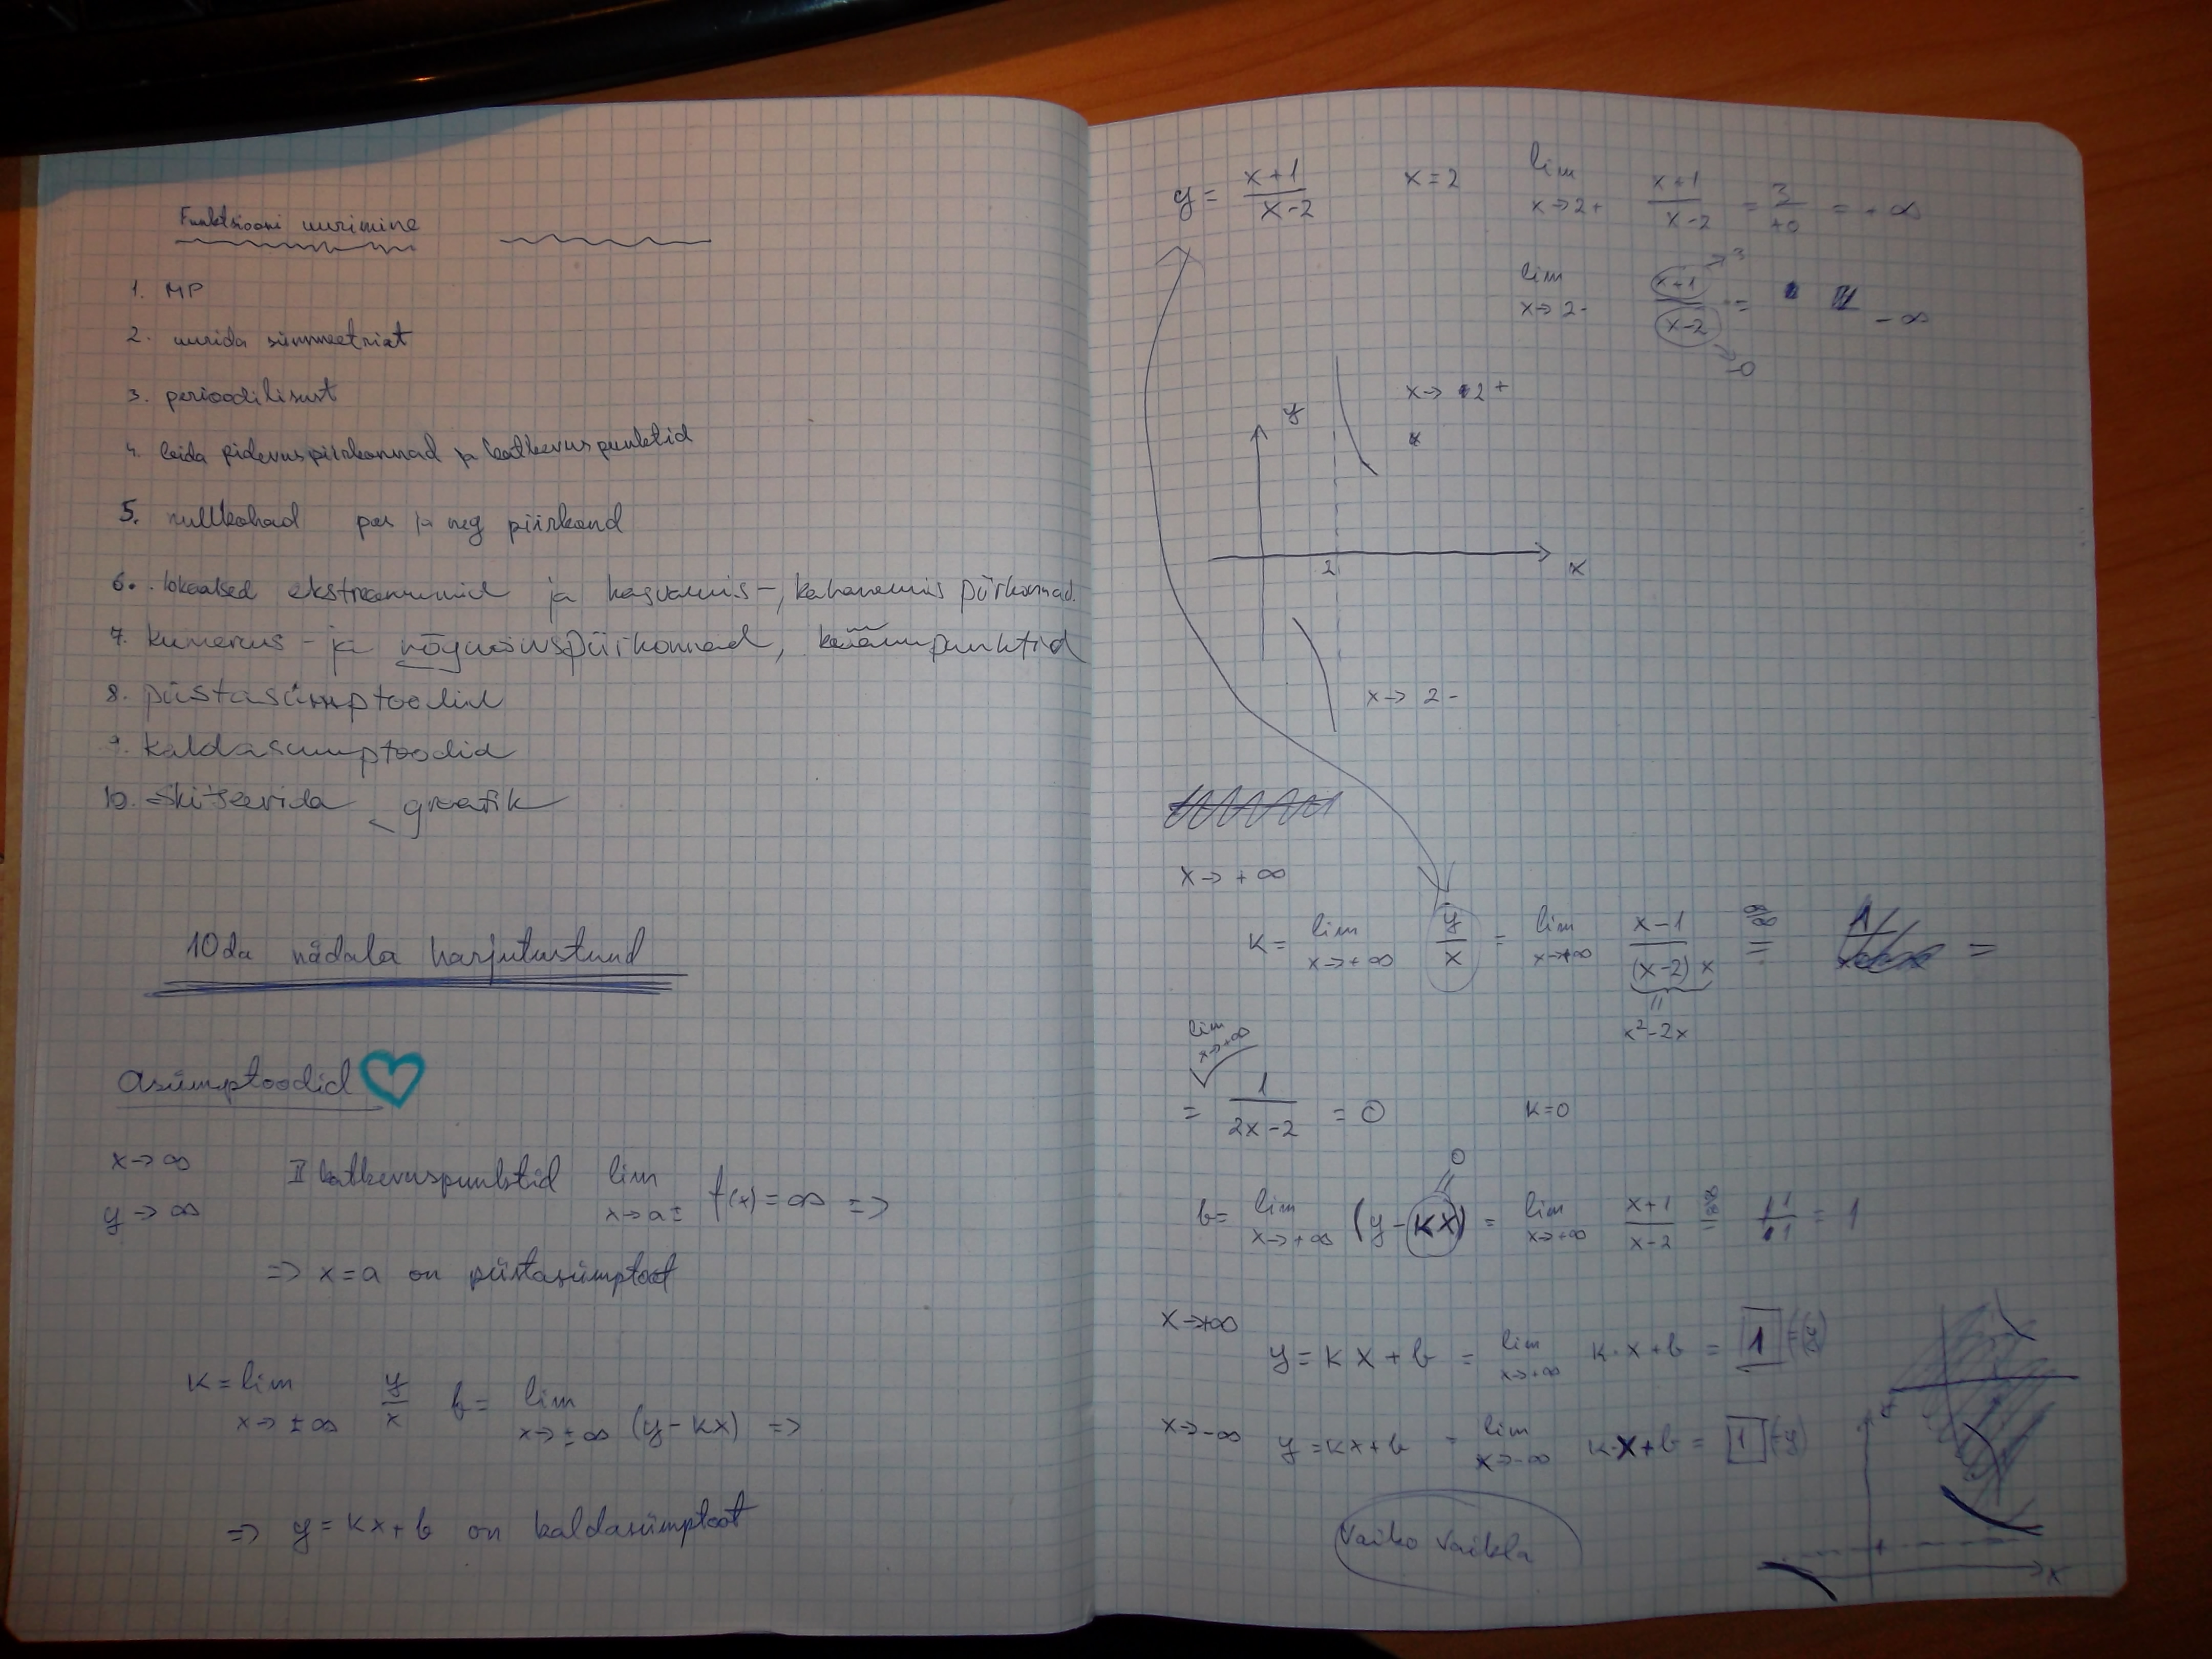 Funktsiooni uurimine
1. MP
2. uurida sümmeetriat
3. perioodilisust
4. leida pidevuspiirkonnad ja katkevuspunktid
5. nullkohad pos ja neg piirkond
6. lokaalsed ekstreemumid ja kasvamis-, kahanemis piirkonnad.
7. kumerus- ja nõgususpiirkonnad, käänupunktid
8. püstasümptoodid
9. kaldasümptoodid
10. skitseerida graafik
10da nädala harjutustund
asümptoodid
x→∞
y→∞
II katkevuspunktid lim x→a± f(x) = ∞ =>
=> x=a on püstasümptoot
K = lim x→±∞ y/x b = lim x→±∞ (y-kx) =>
=> y = kx+b on kaldasümptoot
y = x+1/x-2 x=2 lim x→2+ x+1/x-2 = 3/+0 = +∞
lim x→2- x+1/x-2 = -∞
3
-0
x→ 2+
y
x
2
x→ 2-
x→ +∞
K = lim x→+∞ y/x = lim x→+∞ x-1/(x-2)x ∞/∞ = =
x²-2x
lim x→+∞
= 1/2x-2 = 0 k=0
0
b = lim x→+∞ (y-kx) = lim x→+∞ x+1/x-2 ∞/∞ = 1/1 = 1
x→+∞
y = kx+b = lim x→+∞ k·x+b = 1 (=y)
x→-∞ y = kx+b = lim x→-∞ k·x+b = 1 (=y)
Vaiko Vaikla
x